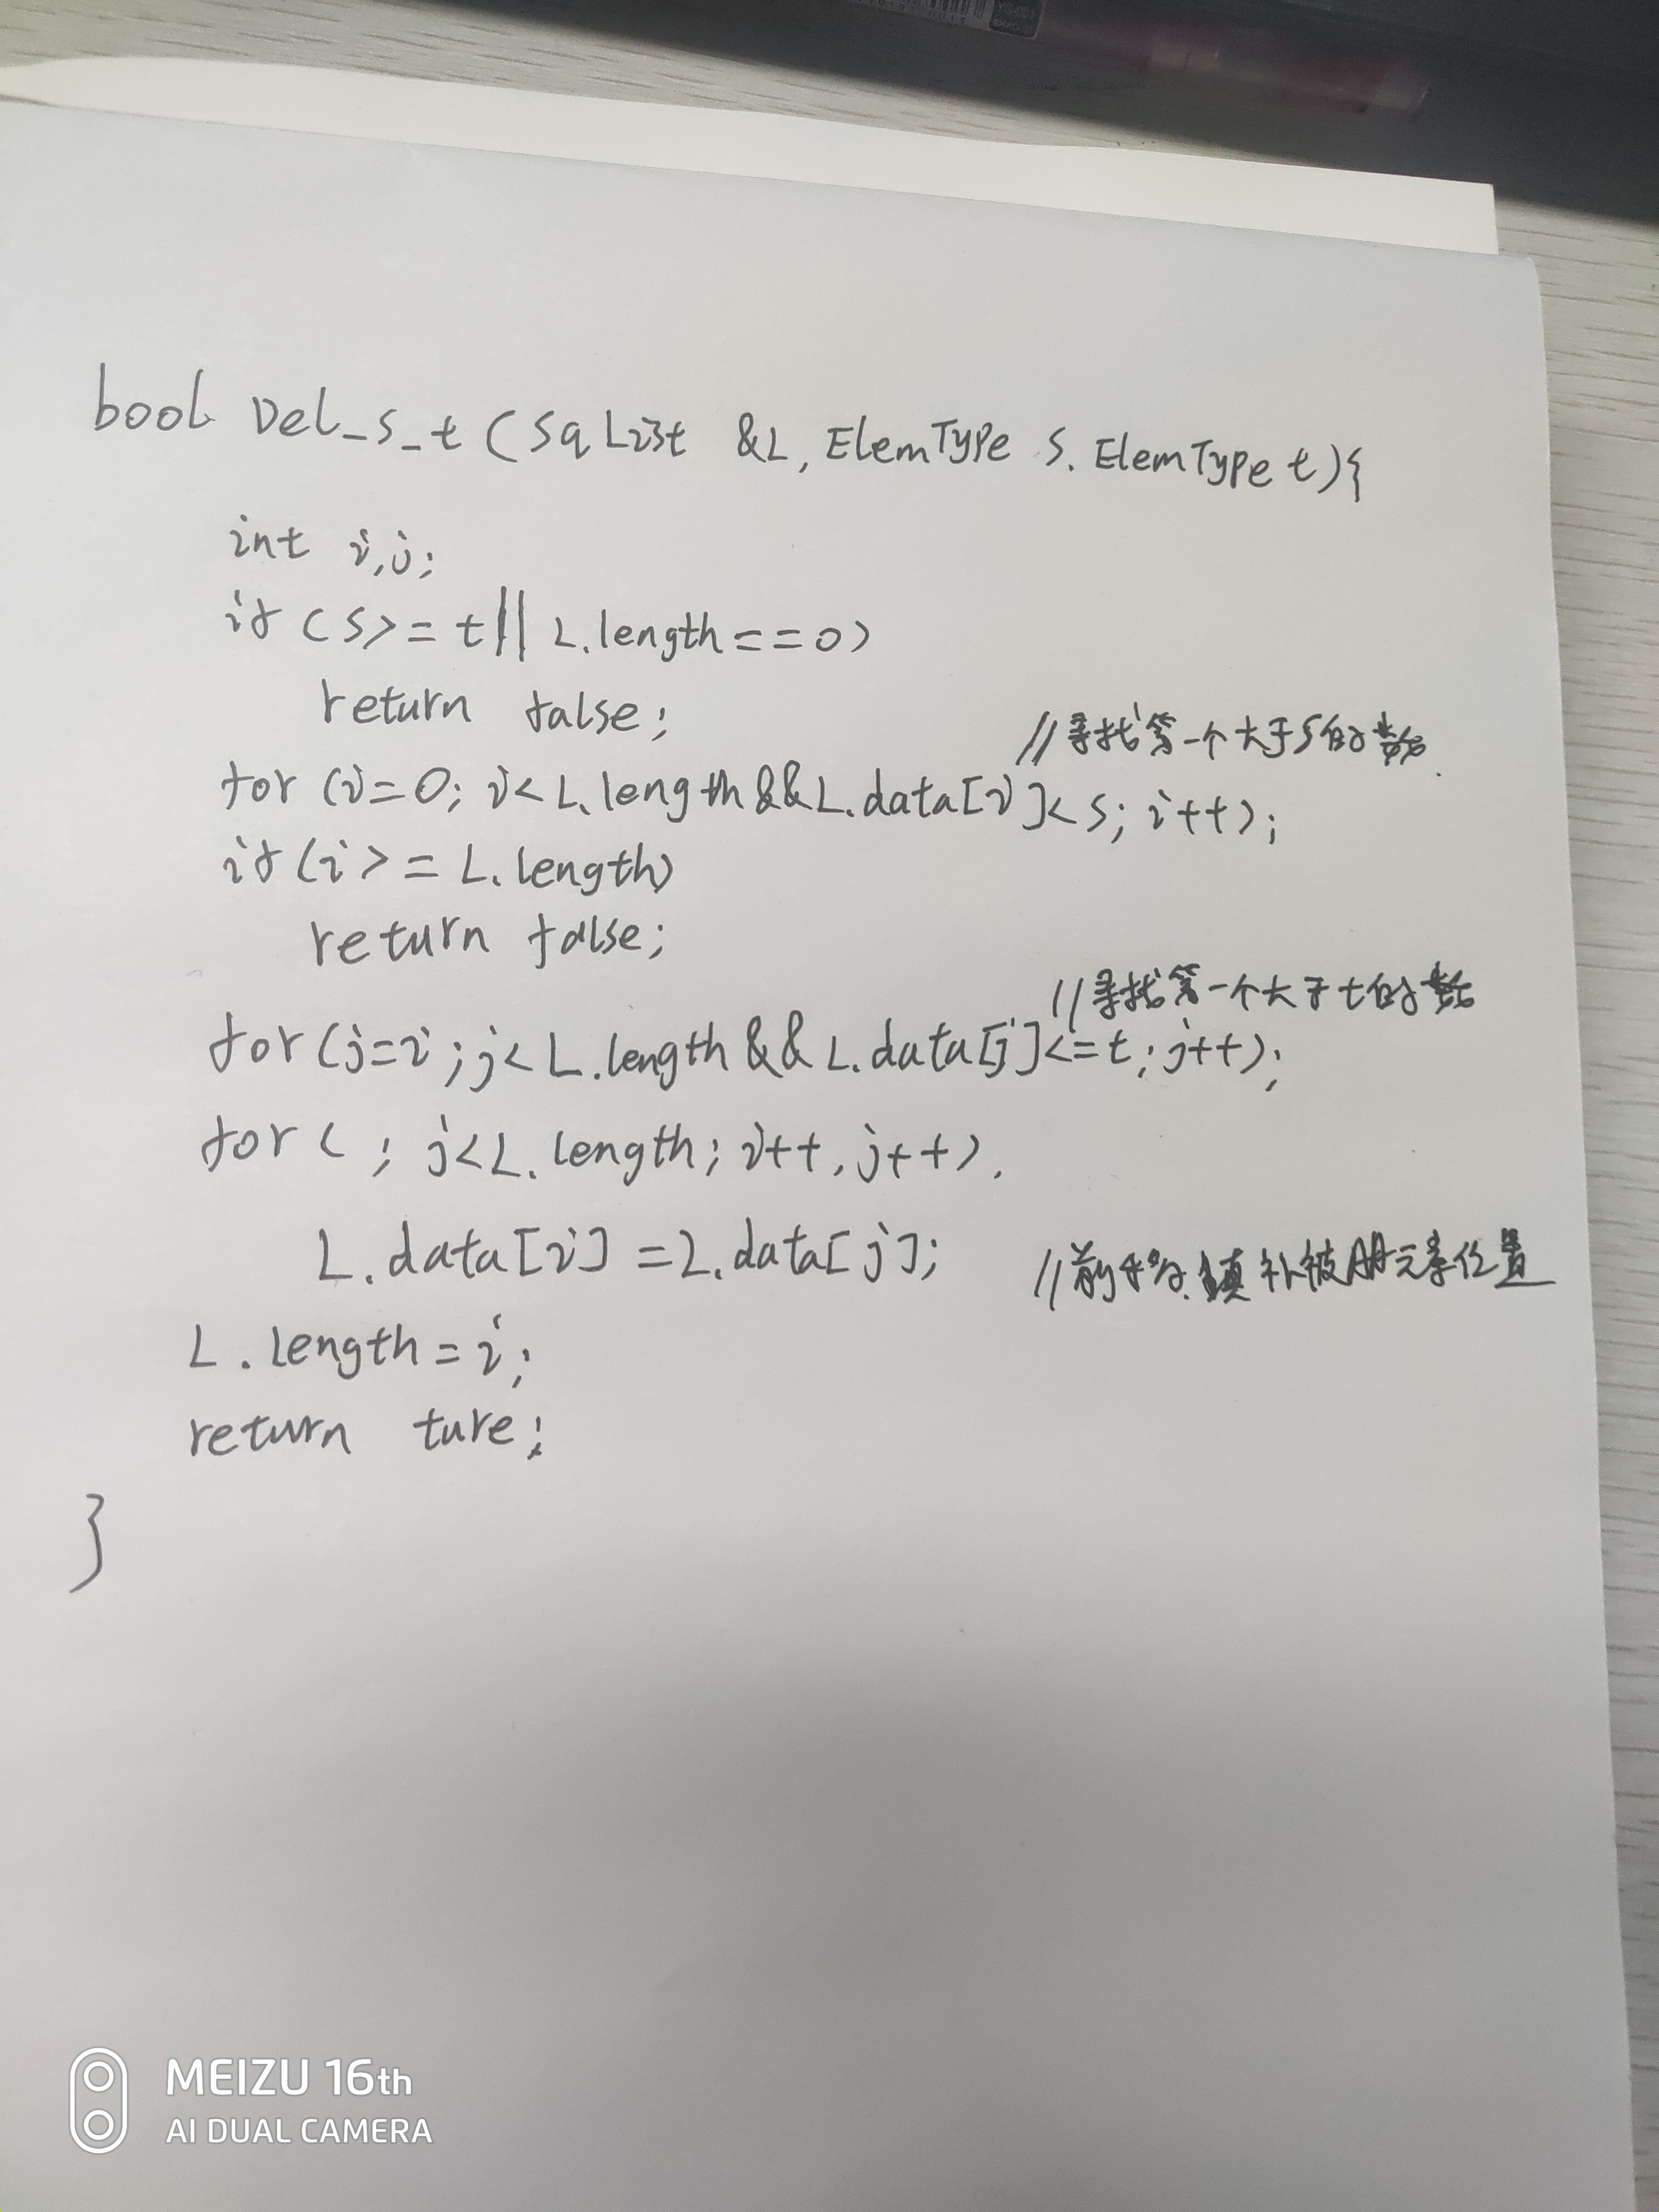 bool Del_s_t (SqList &L, ElemType s. ElemType t){
int i,j;
if (s>=t || L.length==0)
return false;
//寻找第一个大于s的数
for (i=0; i<L.length&&L.data[i]<s; i++);
if (i>=L.length)
return false;
//寻找第一个大于t的数
for (j=i; j<L.length&&L.data[j]<=t; j++);
for ( ; j<L.length; i++, j++).
L.data[i]=L.data[j]; //前移,填补被删元素位置
L.length=i;
return ture;
}
MEIZU 16th
AI DUAL CAMERA